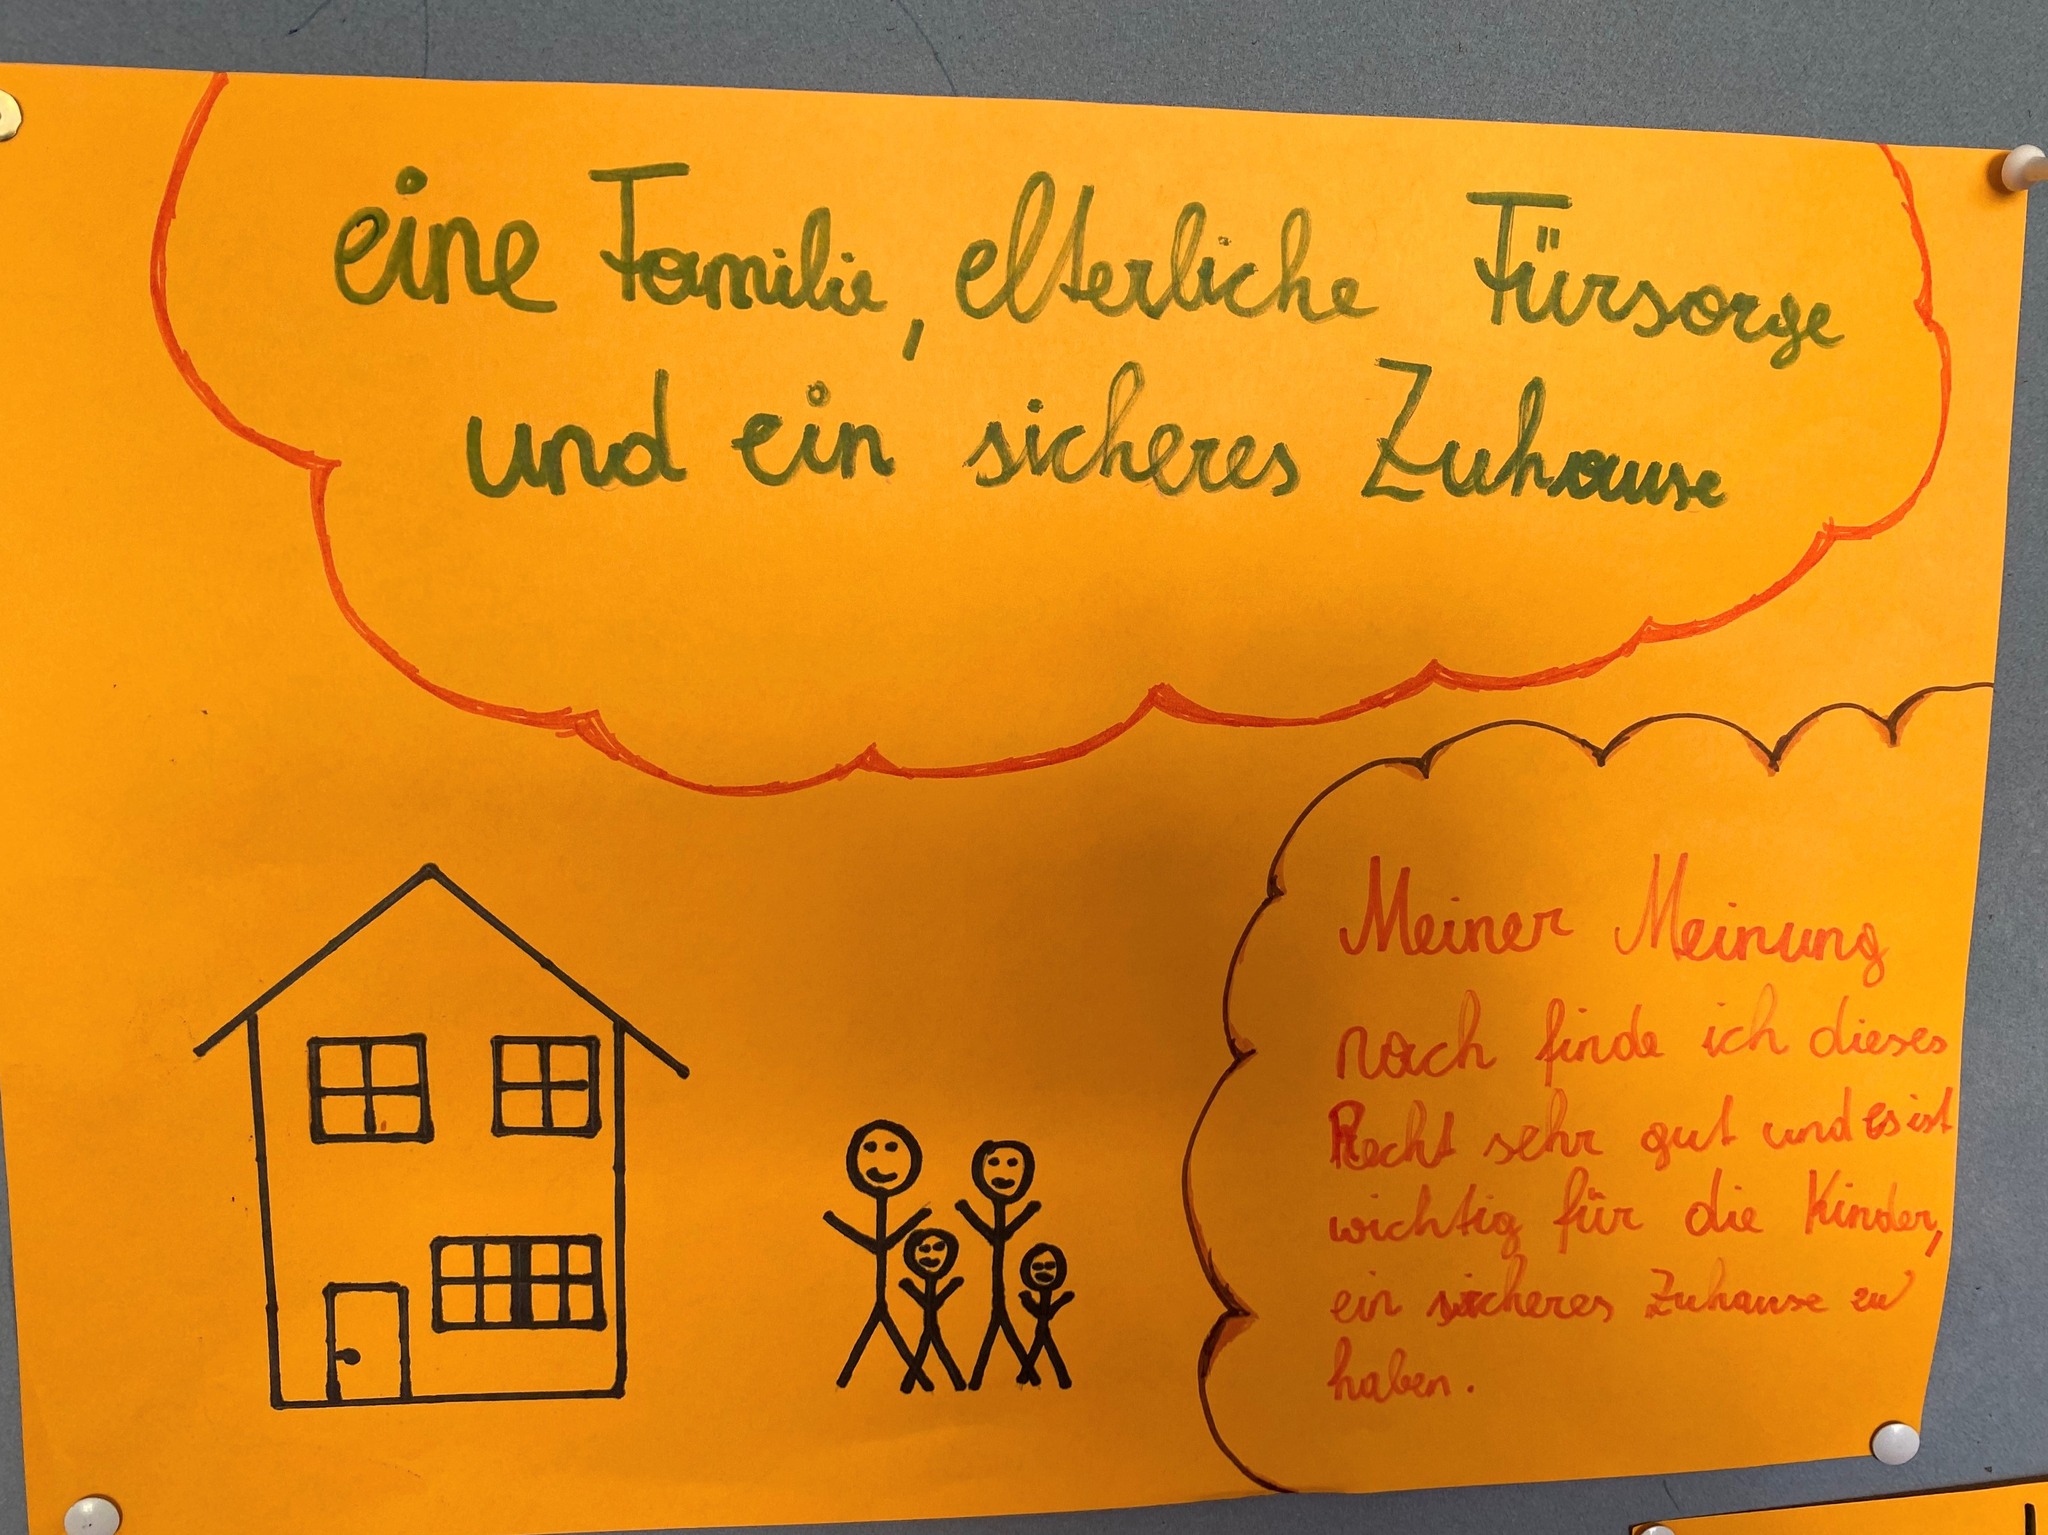 eine Familie, elterliche Fürsorge
und ein sicheres Zuhause
Meiner Meinung
nach finde ich dieses
Recht sehr gut und es ist
wichtig für die Kinder,
ein sicheres Zuhause zu
haben.